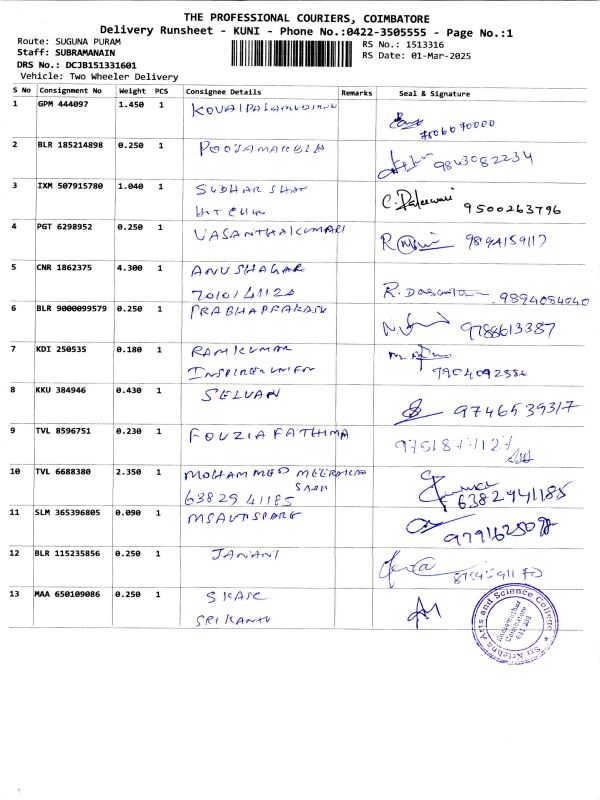 THE PROFESSIONAL COURIERS, COIMBATORE
Delivery Runsheet - KUNI - Phone No.:0422-3505555 - Page No.:1
Route: SUGUNA PURAM
Staff: SUBRAMANAIN
DRS No.: DCJB151331601
Vehicle: Two Wheeler Delivery
RS No.: 1513316
RS Date: 01-Mar-2025
S No Consignment No Weight PCS Consignee Details Remarks Seal & Signature
1 GPM 444097 1.450 1
7506070000
2 BLR 185214898 0.250 1 POOJAMARBLE 9843082234
3 IXM 507915780 1.040 1 SUDHARSHAN
9500263796
4 PGT 6298952 0.250 1 VASANTHAKUMARI 9894159117
5 CNR 1862375 4.300 1 ANUSHAGAR
7010141120 9894084040
6 BLR 9000099579 0.250 1 PRABHAPRAKASH 9788613387
7 KDI 250535 0.180 1 RAMKUMAR
7904092886
8 KKU 384946 0.430 1 SELVAN 9746539317
9 TVL 8596751 0.230 1 FOUZIA FATHIMA
10 TVL 6688380 2.350 1 MOHAMMED MEERAKAN
63829 41185 6382941185
11 SLM 365396805 0.090 1 MSAUTOSPARE
12 BLR 115235856 0.250 1 JANANI
13 MAA 650109086 0.250 1 SKASC
SRIKANTH
Sri Krishna Arts and Science College
Kuniamuthur
Coimbatore
641 008